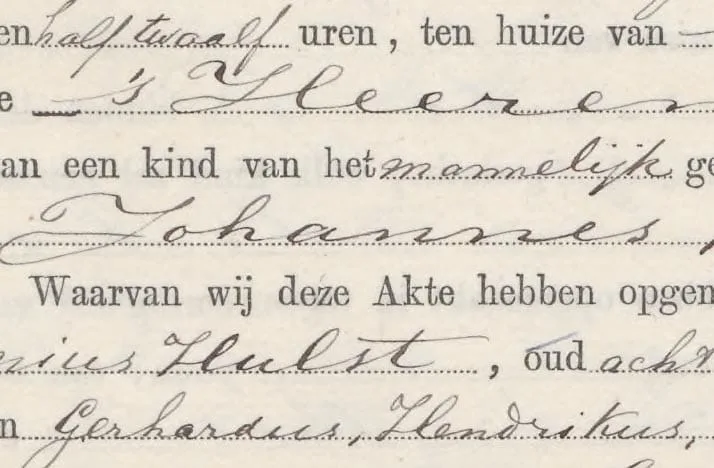 en half twaalf uren, ten huize van
e 's Heeren
an een kind van het mannelijk ge
Johannes,
Waarvan wij deze Akte hebben opgen
nius Hulst, oud acht
n Gerhardus, Hendrikus,